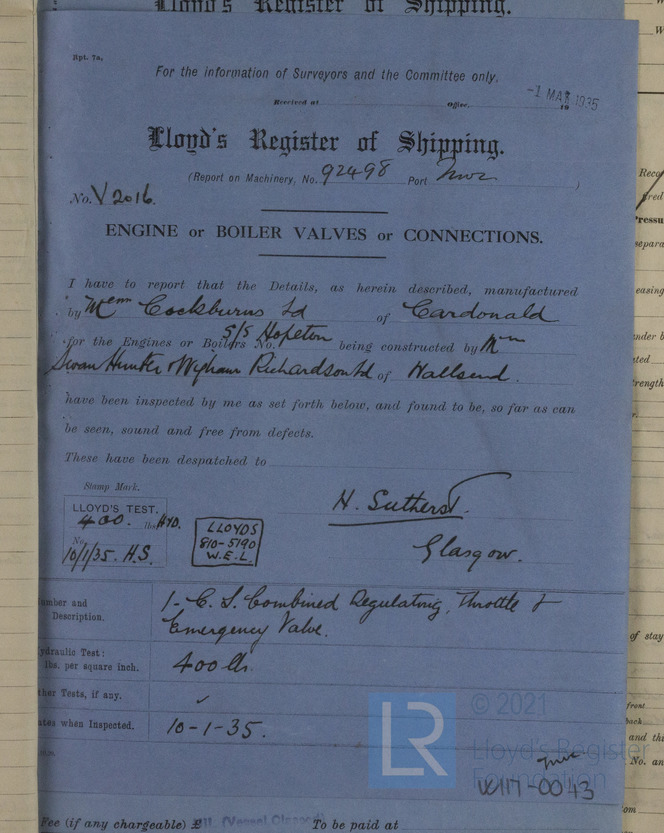 Lloyd's Register of Shipping.
Rpt. 7a.
For the information of Surveyors and the Committee only.
Received at Office. 19
-1 MAR 1935
Lloyd's Register of Shipping.
(Report on Machinery, No. 92498 Port Nwc )
No. V 2016.
ENGINE or BOILER VALVES or CONNECTIONS.
I have to report that the Details, as herein described, manufactured
by Messrs Cockburns Ld of Cardonald
S/S Hopeton
for the Engines or Boilers No. being constructed by Mssrs
Swan Hunter & Wigham Richardson Ld of Wallsend.
have been inspected by me as set forth below, and found to be, so far as can
be seen, sound and free from defects.
These have been despatched to
Stamp Mark.
LLOYD'S TEST.
400. lbs. HYD.
No.
10/1/35. H.S.
LLOYDS
810-5790
W.E.L.
H. Sutherst.
Glasgow.
umber and
Description.
1- C. S. Combined Regulating, Throttle &
Emergency Valve.
ydraulic Test:
lbs. per square inch.
400 lbs.
ther Tests, if any. ✓
ates when Inspected. 10-1-35.
LR
© 2021
Lloyd's Register
Foundation
W117-0043
Fee (if any chargeable) £ To be paid at